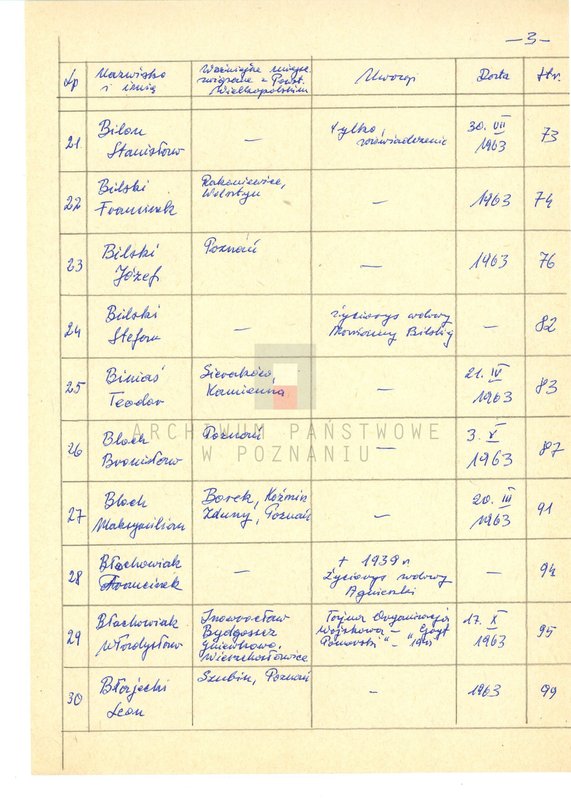 — 3 —
Lp
Nazwisko i imię
Ważniejsze miejsc. związane z Powst. Wielkopolskim
Uwagi
Data
Str.
21. Bilon Stanisław — tylko zaświadczenie 30. VII 1963 73
22 Bilski Franciszek Rakoniewice, Wolsztyn — 1963 74
23 Bilski Józef Poznań — 1963 76
24 Bilski Stefan — życiorys wdowy Marianny Bilskiej — 82
25 Biniaś Teodor Kamienna — 21. IV 1963 83
26 Bloch Bronisław Poznań — 3. V 1963 87
27 Bloch Maksymilian Borek, Koźmin Zduny, Poznań — 20. III 1963 91
28 Błachowiak Franciszek — + 1939 r. Życiorys wdowy Agnieszki — 94
29 Błachowiak Władysław Inowrocław Bydgoszcz Gniewkowo, Wierzchosławice Tajna Organizacja Wojskowa — 17. X 1963 95
30 Leon Szubin, Poznań — 1963 99
ARCHIWUM PAŃSTWOWE
W POZNANIU